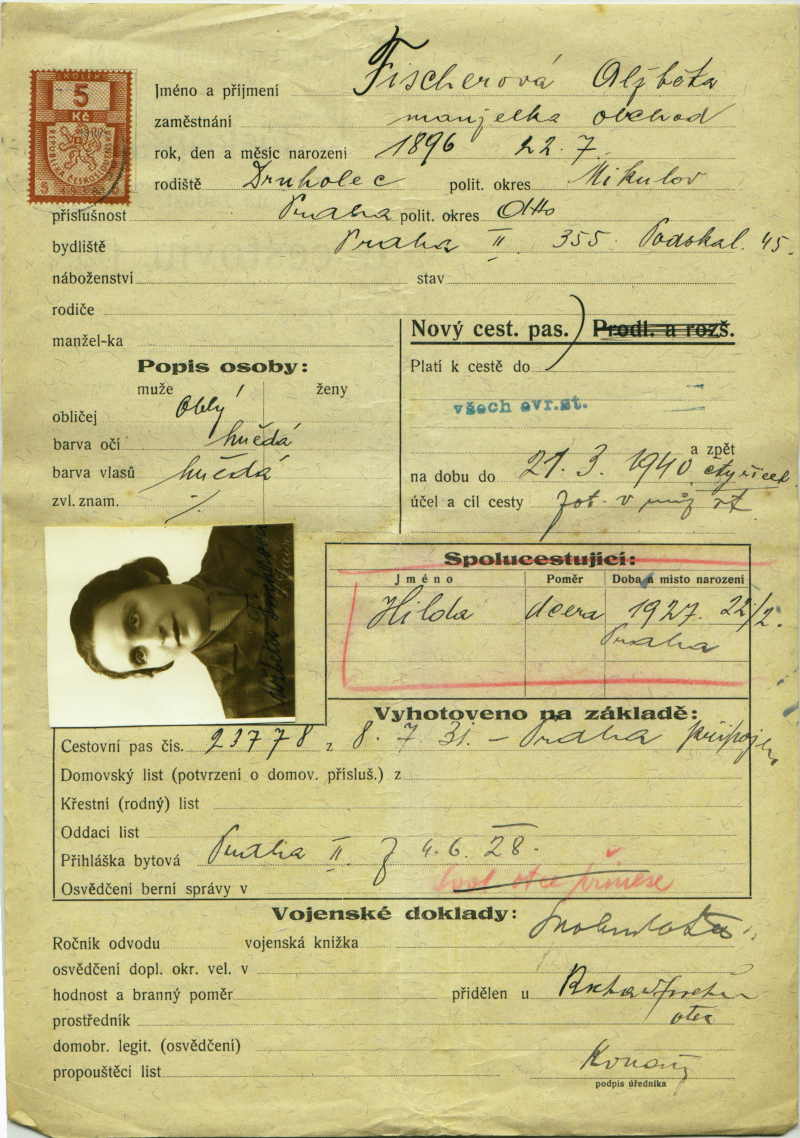 KOLEK
5
Kč
REPUBLIKA ČESKOSLOVENSKÁ
Jméno a příjmení Fischerová Alžběta
zaměstnání manželka obchod
rok, den a měsíc narození 1896 22.7.
rodiště Drnholec polit. okres Mikulov
příslušnost Praha polit. okres dtto
bydliště Praha II. 355. Podskal. 45.
náboženství stav
rodiče
manžel-ka
Nový cest. pas. Prodl. a rozš.
Popis osoby:
muže ženy
obličej oblý
barva očí hnědá
barva vlasů hnědá
zvl. znam. %
Platí k cestě do
všech evr.st.
na dobu do 21. 3. 1940 a zpět
účel a cíl cesty
Spolucestující:
Jméno Poměr Doba a místo narození
Hilda dcera 1927. 22/2.
Praha
Vyhotoveno na základě:
Cestovní pas čís. 23778 z 8. 7. 31. – Praha
Domovský list (potvrzení o domov. přísluš.) z
Křestní (rodný) list
Oddací list
Přihláška bytová Praha II. z 4. 6. 28.
Osvědčení berní správy v
přinese
Vojenské doklady:
Ročník odvodu vojenská knížka
osvědčení dopl. okr. vel. v
hodnost a branný poměr přidělen u
prostředník
domobr. legit. (osvědčení)
propouštěcí list
podpis úředníka